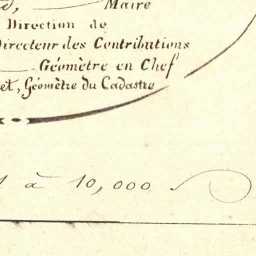 Maire
Direction de
Directeur des Contributions
Géomètre en Chef
et, Géomètre du Cadastre
1 à 10,000